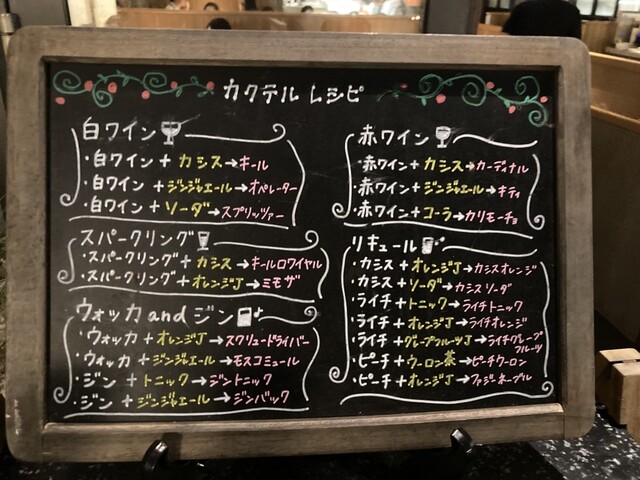 カクテルレシピ
白ワイン
・白ワイン+カシス→キール
・白ワイン+ジンジャエール→オペレーター
・白ワイン+ソーダ→スプリッツァー
スパークリング
・スパークリング+カシス→キールロワイヤル
・スパークリング+オレンジJ→ミモザ
ウォッカandジン
・ウォッカ+オレンジJ→スクリュードライバー
・ウォッカ+ジンジャエール→モスコミュール
・ジン+トニック→ジントニック
・ジン+ジンジャエール→ジンバック
赤ワイン
・赤ワイン+カシス→カーディナル
・赤ワイン+ジンジャエール→キティ
・赤ワイン+コーラ→カリモーチョ
リキュール
・カシス+オレンジJ→カシスオレンジ
・カシス+ソーダ→カシスソーダ
・ライチ+トニック→ライチトニック
・ライチ+オレンジJ→ライチオレンジ
・ライチ+グレープフルーツJ→ライチグレープ
フルーツ
・ピーチ+ウーロン茶→ピーチウーロン
・ピーチ+オレンジJ→ファジーネーブル